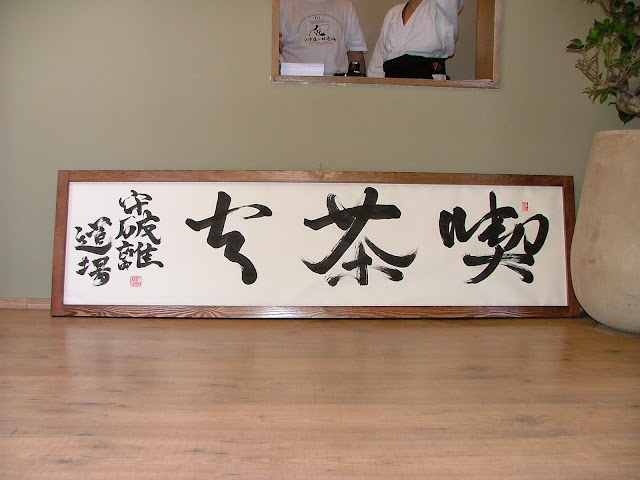 喫茶去
守破離
道場